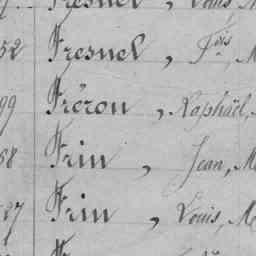 Fresnel, Louis M
52 Fresnel, Fois, M
99 Fréron, Raphaël,
68 Frin, Jean, M
27 Frin, Louis, M